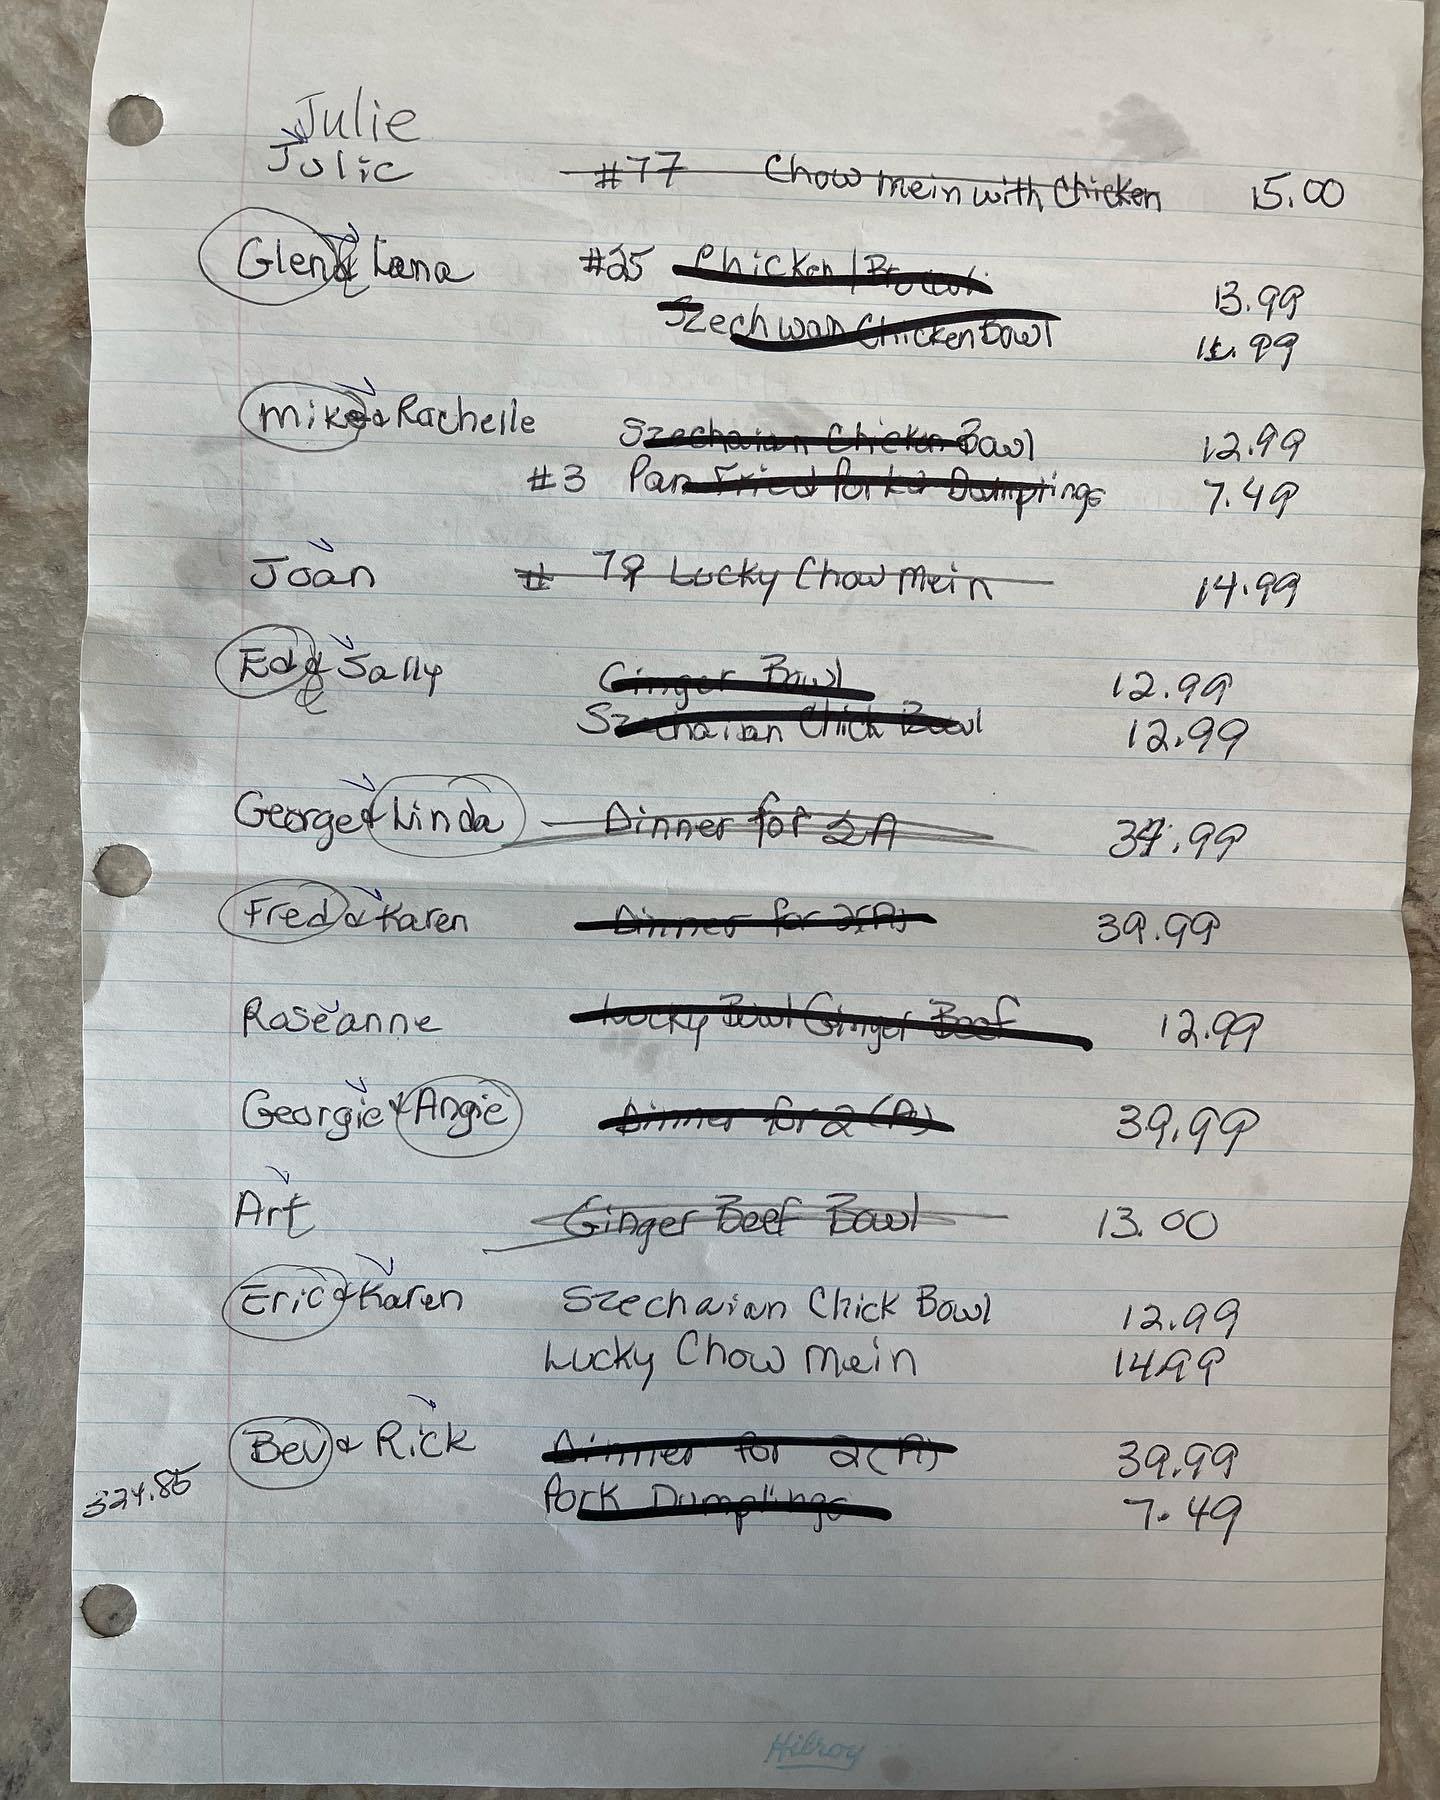 Julie
Julie #77 Chow mein with Chicken 15.00
Glen & Lana #25 Chicken / Broccoli 13.99
Szechwan Chicken Bowl .99
Mike & Rachelle Szechaian Chicken Bowl 12.99
#3 Pan Fried Pork Dumplings 7.49
Joan # 79 Lucky Chow Mein 14.99
Ed & Sally Ginger Bowl 12.99
Szechaian Chick Bowl 12.99
George & Linda Dinner for 2A .99
Fred & Karen Dinner for 2(A) 39.99
Roseanne Lucky Bowl Ginger Beef 12.99
Georgie & Angie Dinner for 2 (A) 39.99
Art Ginger Beef Bowl 13.00
Eric & Karen Szechaian Chick Bowl 12.99
Lucky Chow Mein 14.99
Bev & Rick Dinner for 2(A) 39.99
324.85
Pork Dumplings 7.49
Hilroy